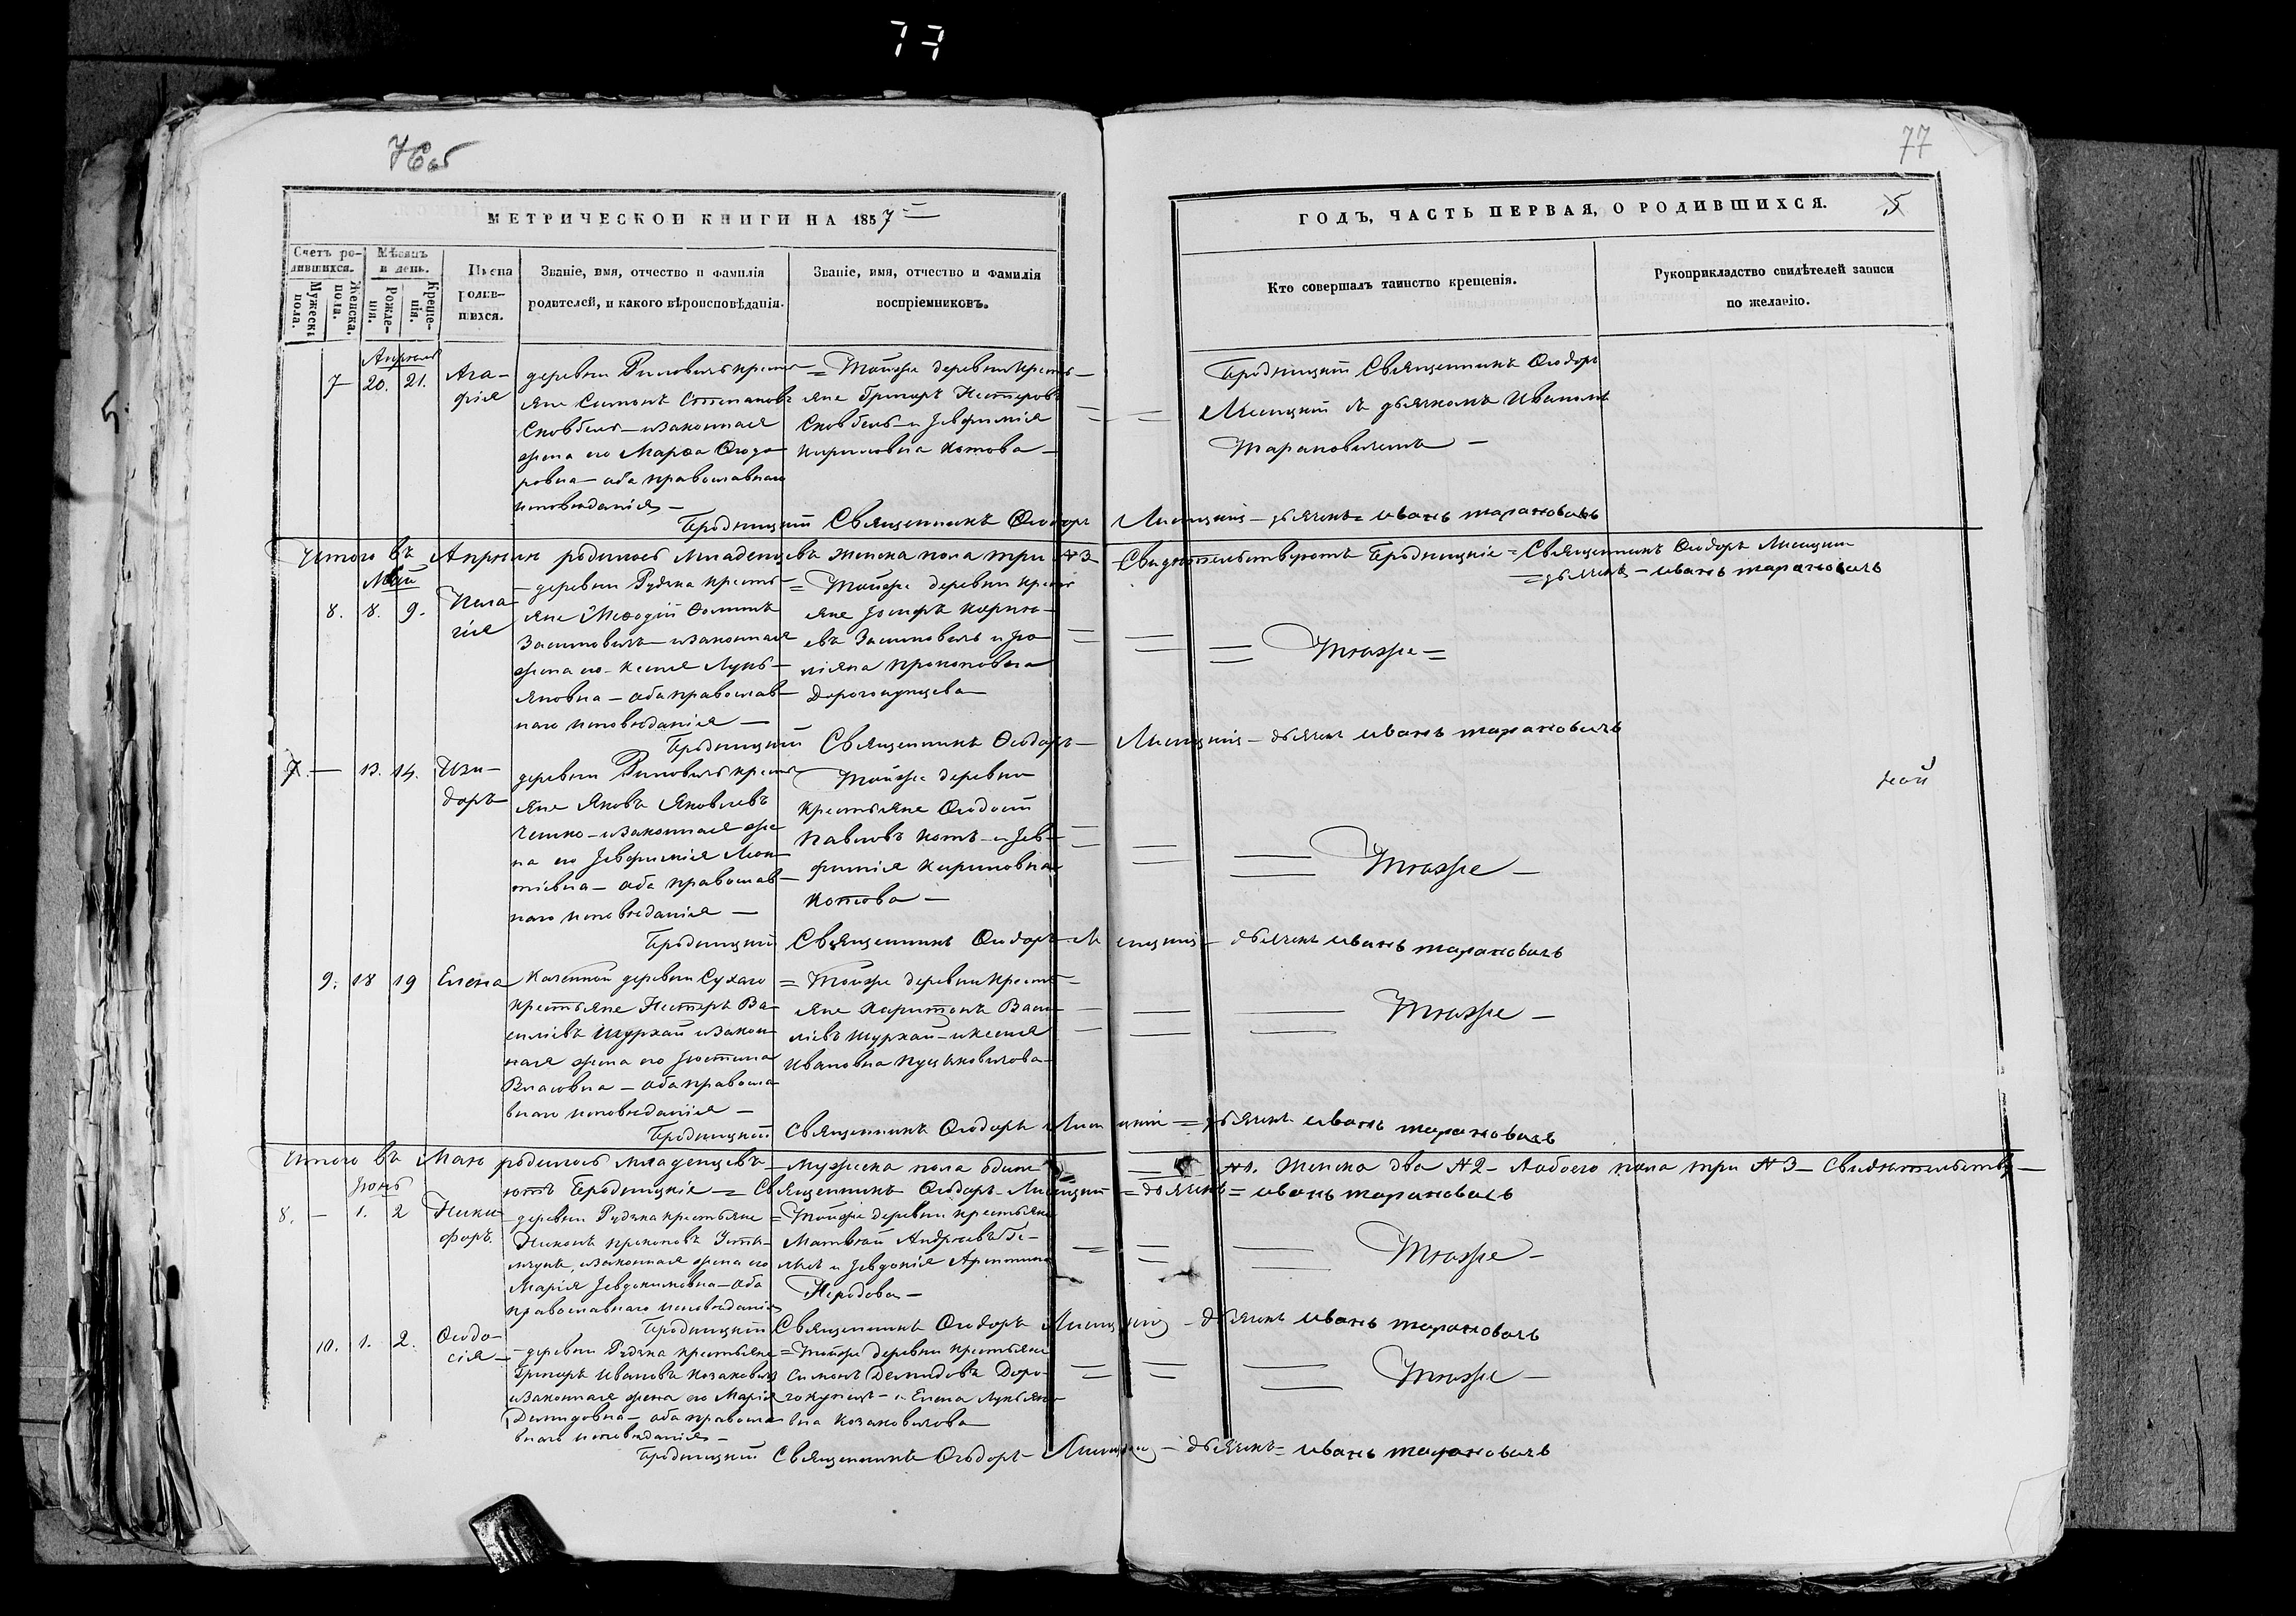 77
76об
77
МЕТРИЧЕСКОЙ КНИГИ НА 1857
ГОДЪ, ЧАСТЬ ПЕРВАЯ, О РОДИВШИХСЯ.
5
Счетъ ро-
дившихся.
Мужеска
пола.
Женска.
пола.
Мѣсяцъ
и день.
Рожде-
нія.
Креще-
нія.
Имена
родив-
шихся.
Званіе, имя, отчество и фамилія
родителей, и какого вѣроисповѣданія.
Званіе, имя, отчество и фамилія
воспріемниковъ.
Кто совершалъ таинство крещенія.
Рукоприкладство свидѣтелей записи
по желанію.
Апрѣль
7 20. 21.
Ага-
фія
деревни кресть-
яне Симонъ Степановъ
Сковбель и законная
жена его Марѳа Ѳеодо
ровна – оба православнаго
исповѣданія –
= Тойже деревни кресть-
яне Григорь Нестеровъ
Сковбель и Іевфимія
Кирилловна Котова –
Бродницкій Священникъ Ѳеодоръ
Лисицкій съ дьячкомъ Иваномъ
Тарановичемъ –
Бродницкій Священникъ Ѳеодоръ Лисицкій – дьячекъ = Иванъ Тарановичь
Итого въ Апрѣлѣ родилось младенцевъ женска пола три №3 – Свидѣтельствуютъ Бродницкіе = Священникъ Ѳеодоръ Лисицкій
= дьячекъ – Иванъ Тарановичь
Май
8. 8. 9.
Пела
гія
– деревни Рудка кресть-
яне Меѳодій Ѳоминъ
и законная
жена его Ксенія Лукь-
яновна – оба православ-
наго исповѣданія –
= Тойже деревни кресть
яне Іосифъ Карпо-
въ и Іу-
ліяна Прокоповна
Дорогокупцева
Тоже =
Бродницкій Священникъ Ѳеодоръ – Лисицкій – дьячекъ Иванъ Тарановичь
7. – 13. 14.
Изи-
доръ
деревни кресть
яне Яковъ Яковлевъ
и законная же
на его Іевфимія Леон-
тіевна – оба православ-
наго исповѣданія –
Тойже деревни
крестьяне Ѳеодосій
Павловъ Котъ – и Іев-
фимія Кириловна
Котова –
Тоже –
ной
Бродницкій Священникъ Ѳеодоръ Лисицкій – дьячекъ Иванъ Тарановичь
9. 18 19
Елена
Казенной деревни Сухаго
крестьяне Нестеръ Ва-
силіевъ Шуркай и закон-
ная жена его Іустина
Власовна – оба правосла
внаго исповѣданія –
= Тойже деревни кресть-
яне Харитонъ Васи
ліевъ Шуркай – и Ксенія
Ивановна
Тоже –
Бродницкій Священникъ Ѳеодоръ Лисицкій = дьячекъ Иванъ Тарановичь
Итого въ Маѣ родилось младенцевъ – Мужеска пола одинъ №1. Женска два №2 – А обоего пола три №3 – Свидѣтельству-
ютъ Бродницкіе = Священникъ Ѳеодоръ Лисицкій = дьячекъ = Иванъ Тарановичь
Іюнь
8. – 1. 2
Ники
форъ.
– деревни Рудка крестьяне
Никонъ Прокоповъ
и законная жена его
Марія Іевдокимовна – оба
православнаго исповѣданія
= Тойже деревни крестьяне
Матвѣй Андреевъ
и Іевдокія
Тоже –
Бродницкій Священникъ Ѳеодоръ Лисицкій – дьячекъ Иванъ Тарановичь
10. 1. 2.
Ѳеодо-
сія –
– деревни Рудка крестьяне
Григорь Ивановъ Козакевичь
и законная жена его Марія
Демидовна – оба правосла
внаго исповѣданія –
= Тойже деревни крестьяне
Симонъ Демидовъ Доро-
гокупецъ – и Елена Лукьяно
вна Козакевичова
Тоже –
Бродницкій Священникъ Ѳеодоръ – Лисицкій – дьячекъ = Иванъ Тарановичь